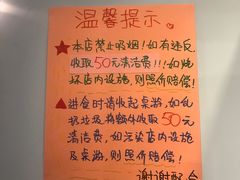 温馨提示
★本店禁止吸烟!如有违反
收取50元清洁费!!!如烧
坏店内设施,则照价赔偿!
▲进食时请收起桌游,如乱
扔垃圾将额外收取50元
清洁费,如污染店内设施
及桌游,则照价赔偿!
谢谢配合